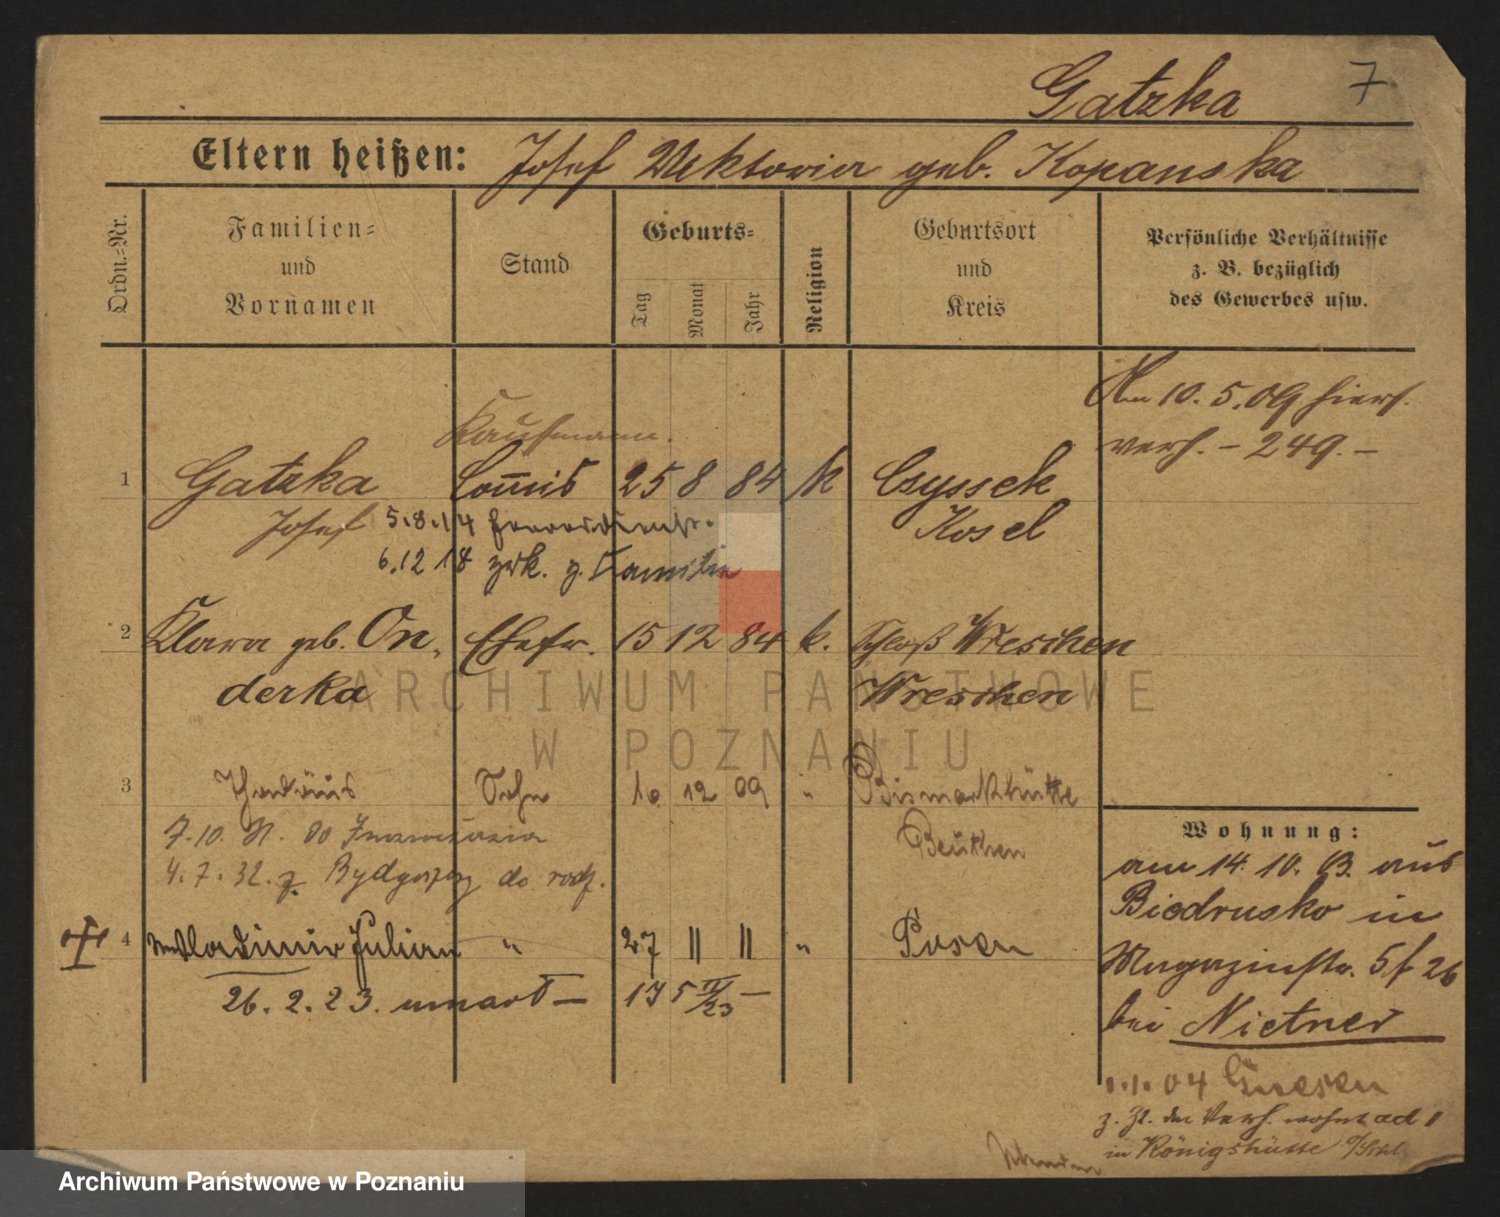 Gatzka 7
Eltern heißen: Josef Viktoria geb. Kopanska
Ordn.-Nr.
Familien-
und
Vornamen
Stand
Geburts-
Tag
Monat
Jahr
Religion
Geburtsort
und
Kreis
Persönliche Verhältnisse
z. B. bezüglich
des Gewerbes usw.
Am 10.5.09 hiers.
verh. - 249. -
Kaufmann.
1 Gatzka Commis 25 8 84 k Czyssek
Josef 5.8.14
Kosel
6.12 18 zrk. z. Familie
2 Klara geb. On- Ehefr. 15 12 84 k. Schloß Wreschen
derka Wreschen
3 Thadäus Sohn 10 12 09 " Bismarkhütte
7.10. do
Beuthen
4.7.32. z Bydgoszcz do rodz.
4 Wladimir Julian " 27 11 11 " Posen
26.2.23. umarł - 17 5 II/23 -
Wohnung:
am 14.10.03. aus
Biedrusko in
Magazinstr. 5 f 26
bei Nietner
1.1.04 Gnesen
z. Zt. der Verh. wohnt ad 1
in Königshütte O/Schl.
ARCHIWUM PAŃSTWOWE
W POZNANIU
Archiwum Państwowe w Poznaniu